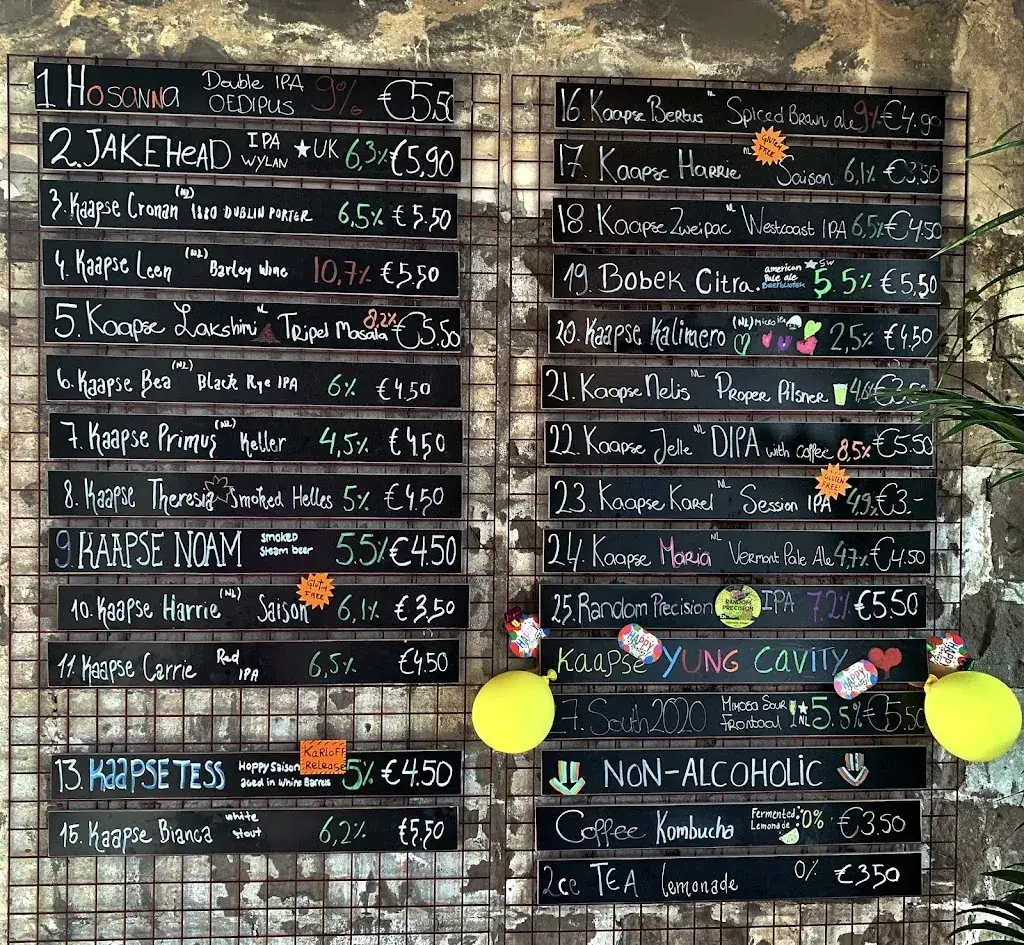 1 Hosanna Double IPA OEDIPUS 9% €5,50
2. JAKEHeAD IPA WYLAN ★UK 6,3% €5,90
3. Kaapse Cronan (NL) 1880 DUBLIN PORTER 6,5% €5,50
4. Kaapse Leen (NL) Barley Wine 10,7% €5,50
5. Kaapse Lakshmi NL Tripel Masala 8,2% €5.50
6. Kaapse Bea (NL) Black Rye IPA 6% €4,50
7. Kaapse Primus (NL) Keller 4,5% €4,50
8. Kaapse Theresia Smoked Helles 5% €4,50
9. KAAPSE NOAM smoked steam beer 5.5% €4.50
10. Kaapse Harrie (NL) Saison Gluten FREE 6,1% €3,50
11. Kaapse Carrie Red IPA 6,5% €4,50
13. KAAPSE TESS Hoppy Saison aged in White Barrels KARLOFF Release 5% €4.50
15. Kaapse Bianca white stout 6,2% €5,50
16. Kaapse Bertus NL Spiced Brown ale 9% €4.90
17. Kaapse Harrie NL GLUTEN FREE Saison 6,1% €3.50
18. Kaapse Zweipac NL Westcoast IPA 6.5% €4.50
19. Bobek Citra. american Pale ale ★SW 5.5% €5,50
20. Kaapse Kalimero (NL) Micro IPA 2,5% €4,50
21. Kaapse Nelis NL Proper Pilsner 4,6% €3.50
22. Kaapse Jelle NL DIPA with coffee 8,5% €5.50
23. Kaapse Karel NL Session IPA GLUTEN FREE! 4,9% €3.-
24. Kaapse Maria NL Vermont Pale Ale 4.7% €4.50
25. Random Precision RANDOM PRECISION IPA 7.2% €5.50
Kaapse YUNG CAVITY
HAPPY HAPPY
27. South 2020 Mimosa Sour Frontaal NL 5.5% €5.50
NON-ALCOHOLIC
Coffee Kombucha Fermented Lemonade 0% €3.50
Ice TEA lemonade 0% €3,50